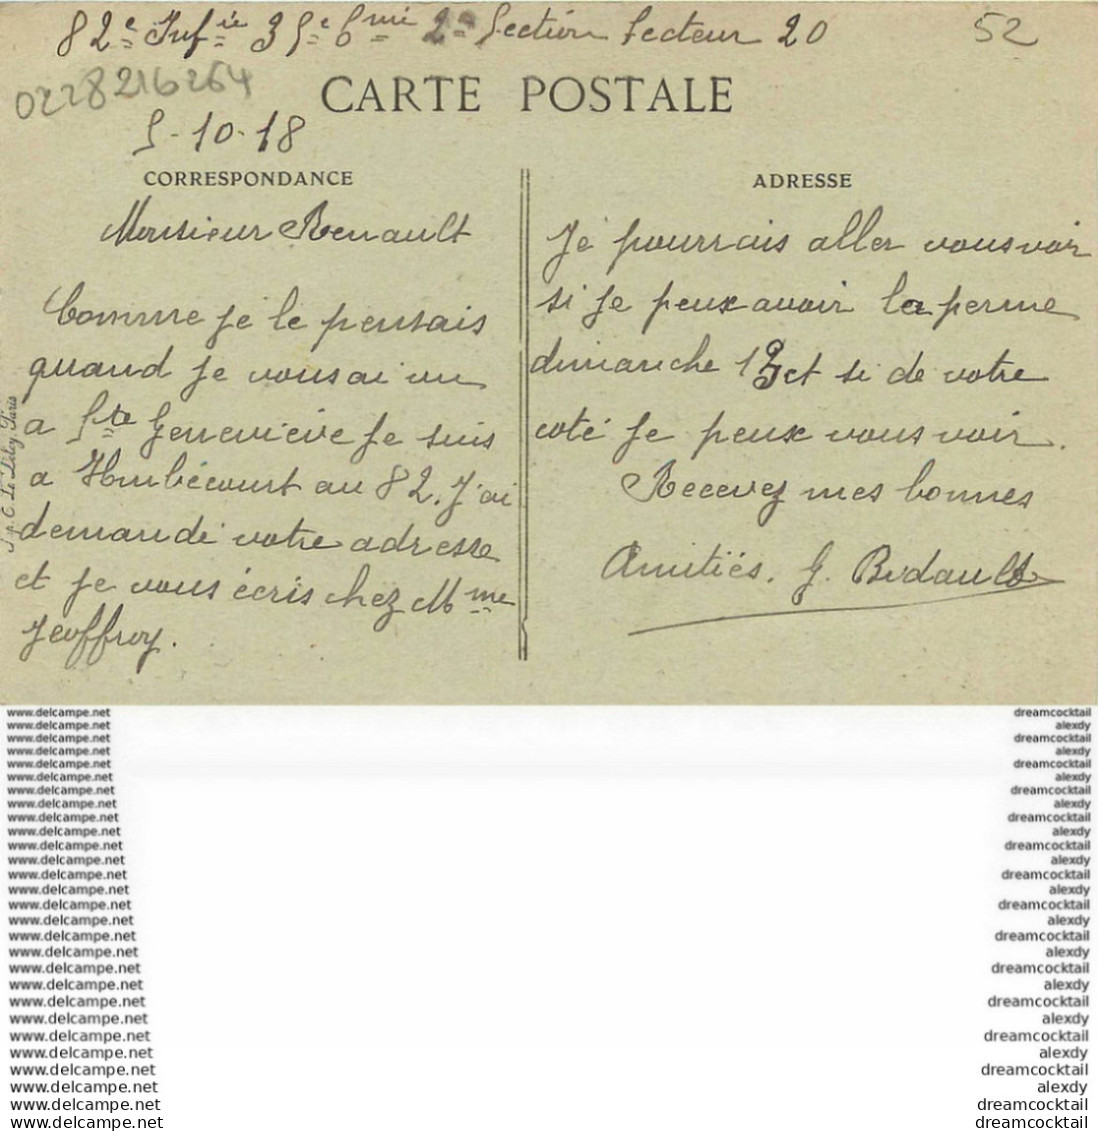 82e Infie 35e Cnie 2e Section Secteur 20
52
0228216264
CARTE POSTALE
5-10-18
CORRESPONDANCE
Monsieur Renault
Comme je le pensais
quand je vous ai vu
a Ste Geneviève je suis
a Humbécourt au 82. J'ai
demandé votre adresse
et je vous écris chez Mme
Jeoffroy.
ADRESSE
Je pourrais aller vous voir
si je peux avoir la perme
dimanche et si de votre
coté je peux vous voir.
Recevez mes bonnes
Amitiés. G. Bidault
www.delcampe.net
www.delcampe.net
www.delcampe.net
www.delcampe.net
www.delcampe.net
www.delcampe.net
www.delcampe.net
www.delcampe.net
www.delcampe.net
www.delcampe.net
www.delcampe.net
www.delcampe.net
www.delcampe.net
www.delcampe.net
www.delcampe.net
www.delcampe.net
www.delcampe.net
www.delcampe.net
www.delcampe.net
www.delcampe.net
www.delcampe.net
www.delcampe.net
www.delcampe.net
www.delcampe.net
www.delcampe.net
www.delcampe.net
www.delcampe.net
www.delcampe.net
dreamcocktail
alexdy
dreamcocktail
alexdy
dreamcocktail
alexdy
dreamcocktail
alexdy
dreamcocktail
alexdy
dreamcocktail
alexdy
dreamcocktail
alexdy
dreamcocktail
alexdy
dreamcocktail
alexdy
dreamcocktail
alexdy
dreamcocktail
alexdy
dreamcocktail
alexdy
dreamcocktail
alexdy
dreamcocktail
dreamcocktail